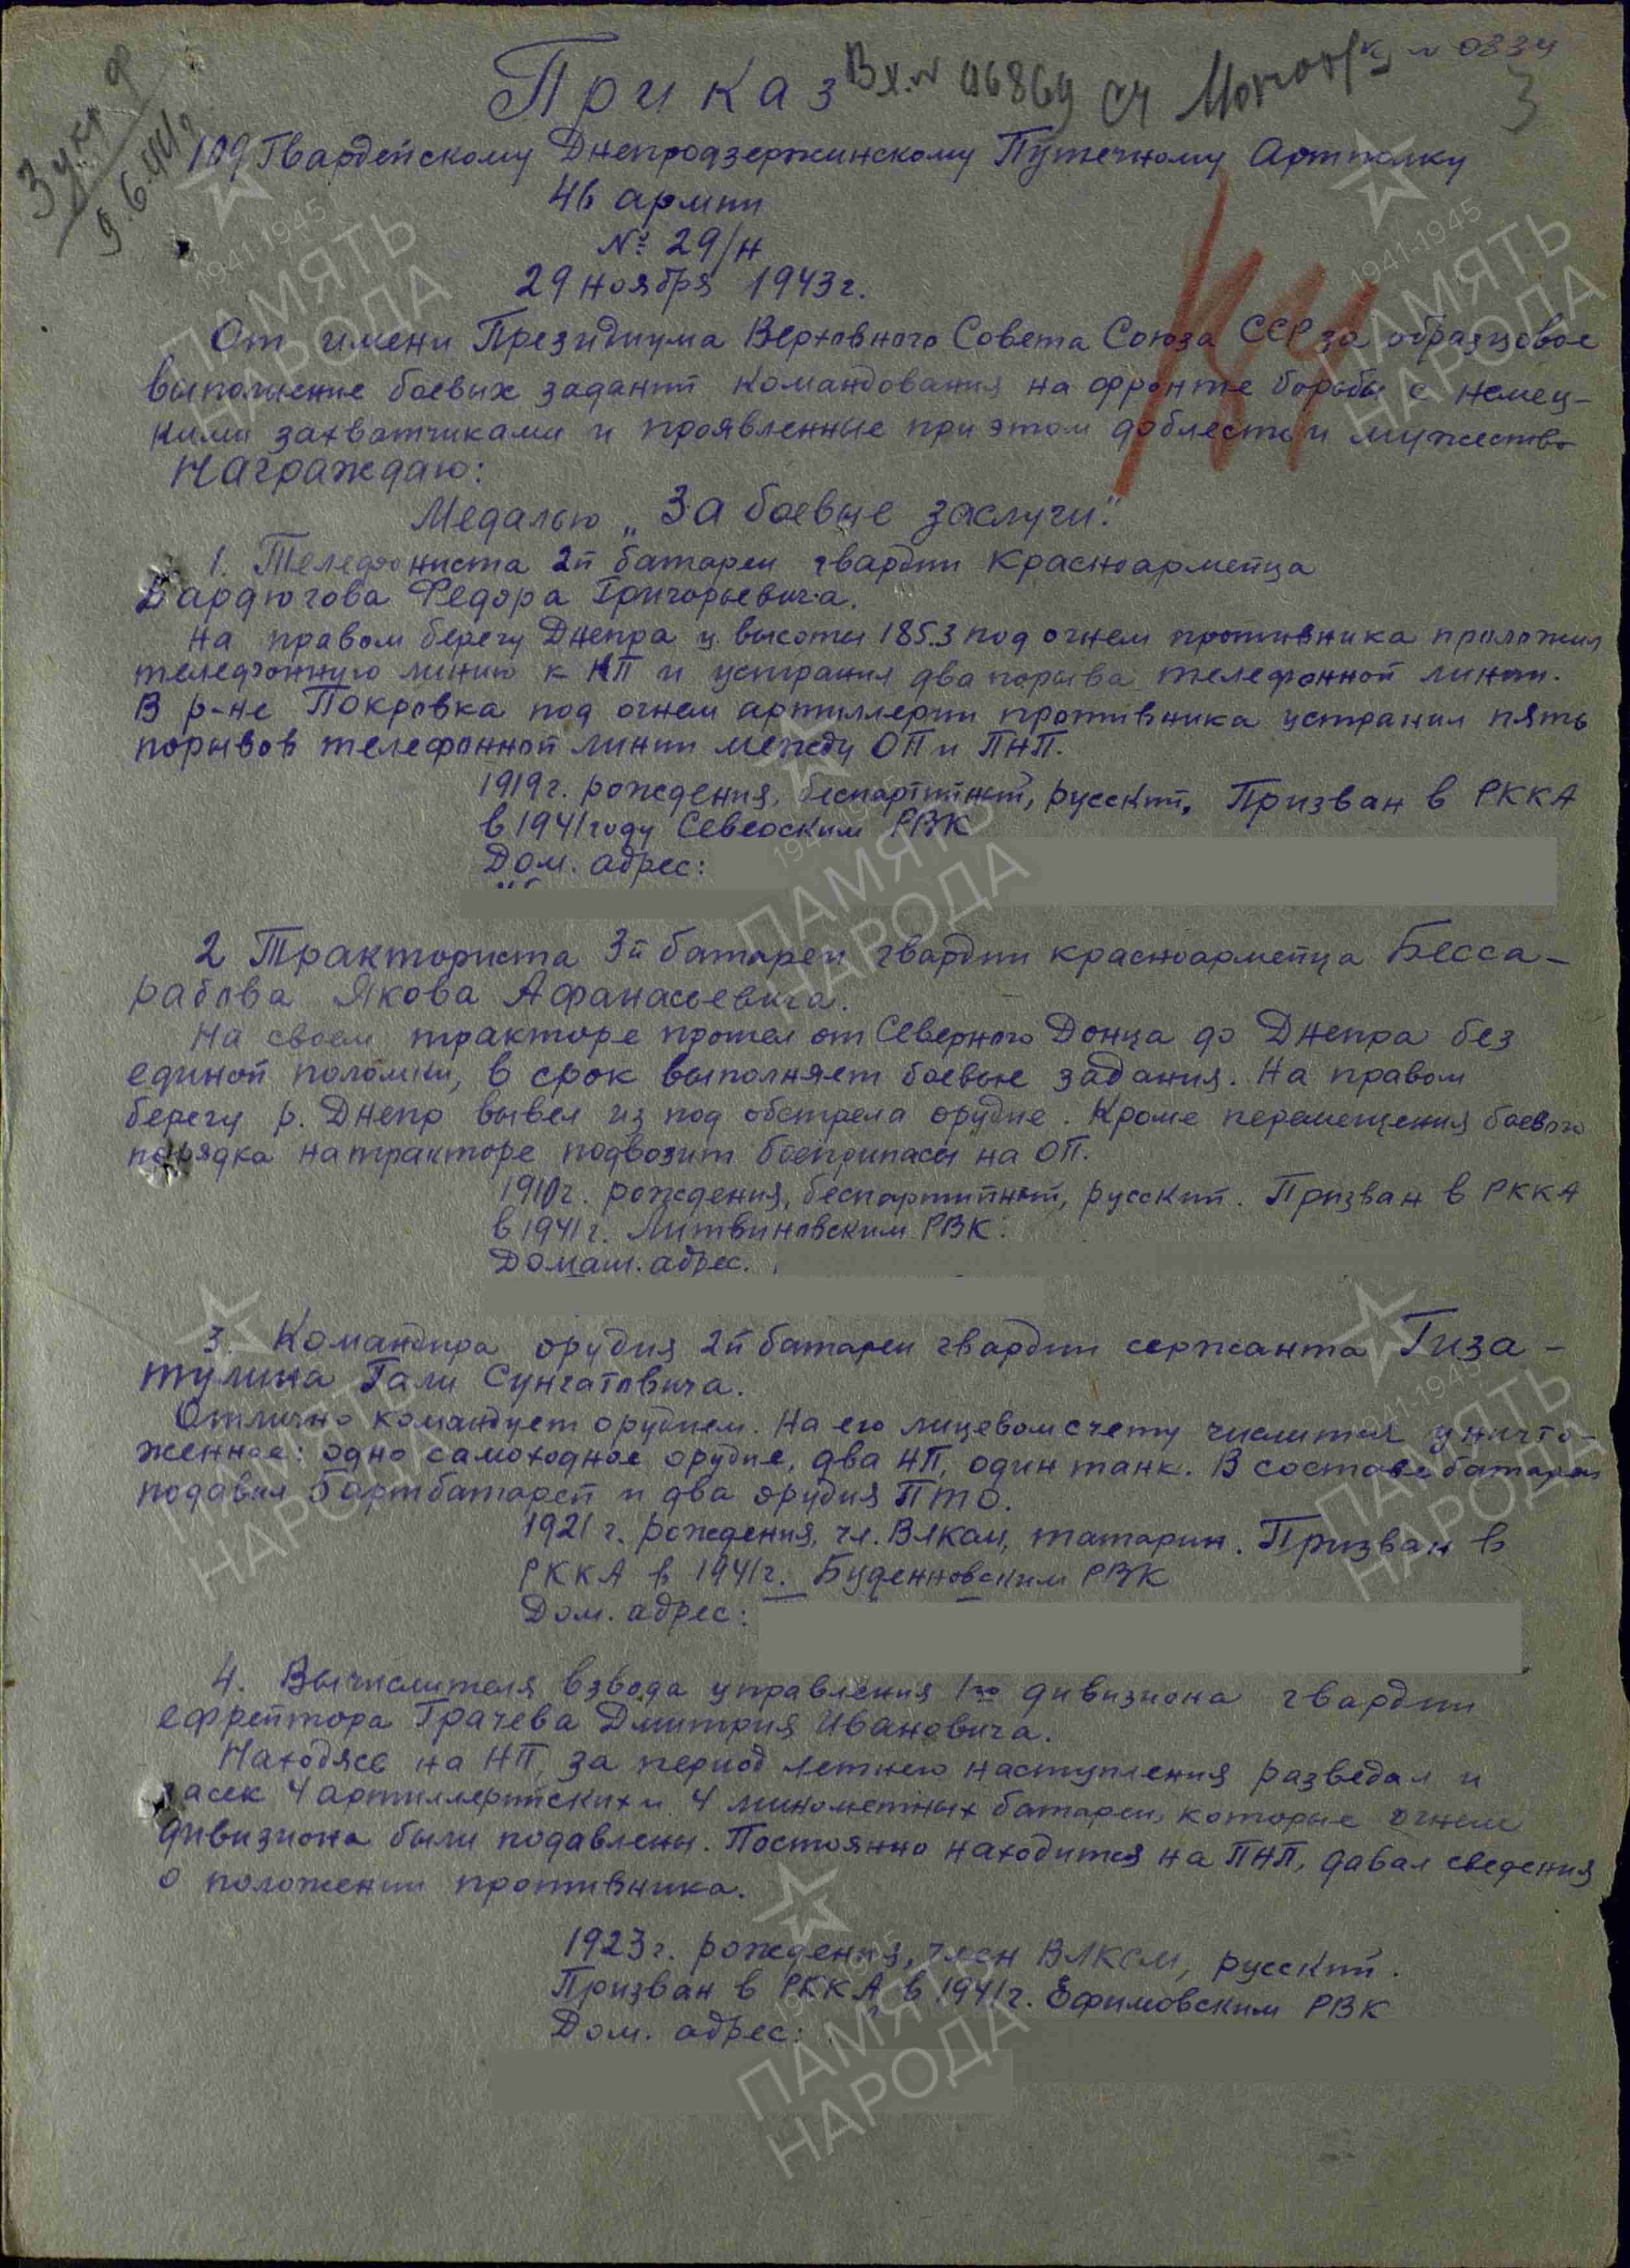 Вх. № 06869
3
3 укр. ф
9.6.44 г.
Приказ
109 Гвардейскому Днепродзержинскому Пушечному Артполку
46 армии
№ 29/н
29 ноября 1943 г.
От имени Президиума Верховного Совета Союза ССР за образцовое
выполнение боевых заданий командования на фронте борьбы с немец-
кими захватчиками и проявленные при этом доблесть и мужество
Награждаю:
Медалью „За боевые заслуги".
1. Телефониста 2й батареи гвардии красноармейца
Бардюгова Федора Григорьевича.
На правом берегу Днепра у высоты 185.3 под огнем противника проложил
телефонную линию к НП и устранил два порыва телефонной линии.
В р-не Покровка под огнем артиллерии противника устранил пять
порывов телефонной линии между ОП и ПНП.
1919 г. рождения, беспартийный, русский. Призван в РККА
в 1941 году Северским РВК
Дом. адрес:
2 Тракториста 3й батареи гвардии красноармейца Бесса-
рабова Якова Афанасьевича.
На своем тракторе прошел от Северного Донца до Днепра без
единой поломки, в срок выполняет боевые задания. На правом
берегу р. Днепр вывел из под обстрела орудие. Кроме перемещения боевого
порядка на тракторе подвозит боеприпасы на ОП.
1910 г. рождения, беспартийный, русский. Призван в РККА
в 1941 г. Литвиновским РВК.
Домаш. адрес.
3. Командира орудия 2й батареи гвардии сержанта Гиза-
тулина Гали Сунгатовича.
Отлично командует орудием. На его лицевом счету числится уничто-
женное: одно самоходное орудие, два НП, один танк. В составе батареи
подавил 5 артбатарей и два орудия ПТО.
1921 г. рождения, чл. ВЛКСМ, татарин. Призван в
РККА в 1941 г. Буденновским РВК
Дом. адрес:
4. Вычислителя взвода управления 1го дивизиона гвардии
ефрейтора Грачева Дмитрия Ивановича.
Находясь на НП, за период летнего наступления разведал и
засек 4 артиллерийских и 4 минометных батареи, которые огнем
дивизиона были подавлены. Постоянно находится на ПНП, давал сведения
о положении противника.
1923 г. рождения, член ВЛКСМ, русский.
Призван в РККА в 1941 г. Ефимовским РВК
Дом. адрес:
1941-1945
ПАМЯТЬ
НАРОДА
1941-1945
ПАМЯТЬ
НАРОДА
1941-1945
ПАМЯТЬ
НАРОДА
1941-1945
ПАМЯТЬ
НАРОДА
1941-1945
ПАМЯТЬ
НАРОДА
1941-1945
ПАМЯТЬ
НАРОДА